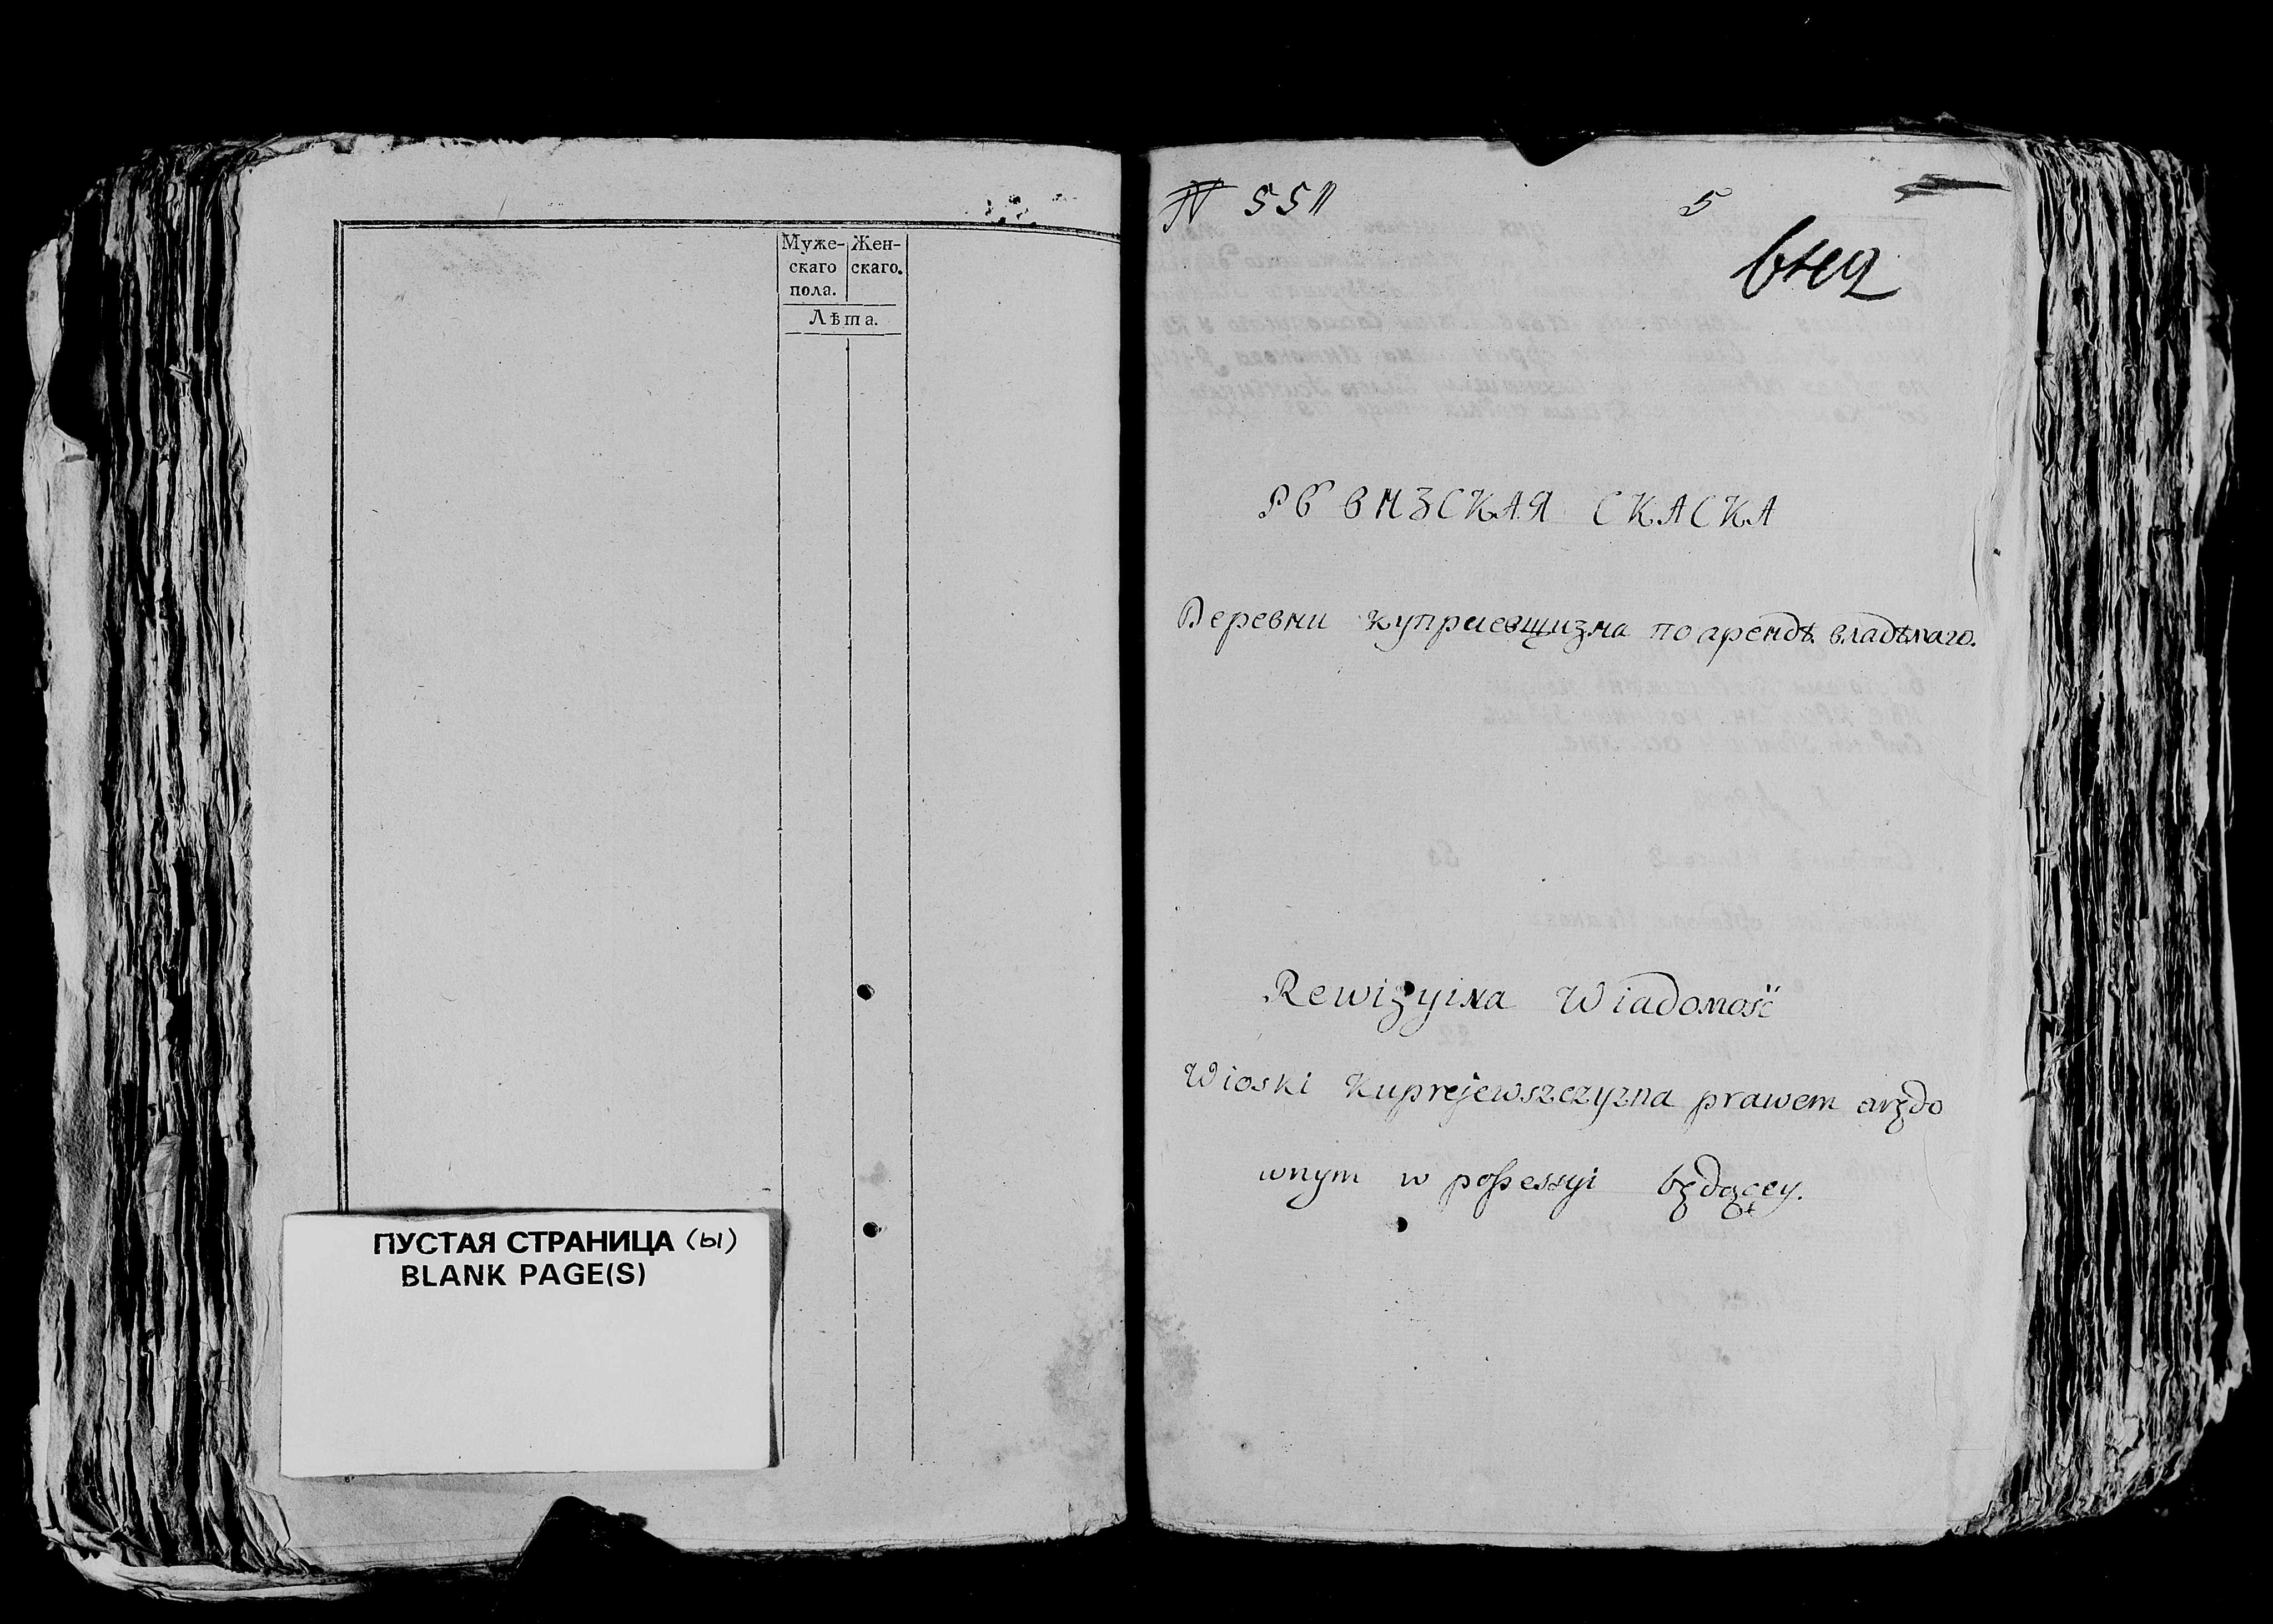 Муже- Жен-
скаго скаго.
пола.
Лѣта.
ПУСТАЯ СТРАНИЦА (ы)
BLANK PAGE(S)
5
РЕВИЗСКАЯ СКАСКА
Деревни Куприевщизна по арендѣ владѣмаго.
Rewizyina Wiadomość
Wioski Kuprejewszczyzna prawem arędo
wnym w possessyi będącey.